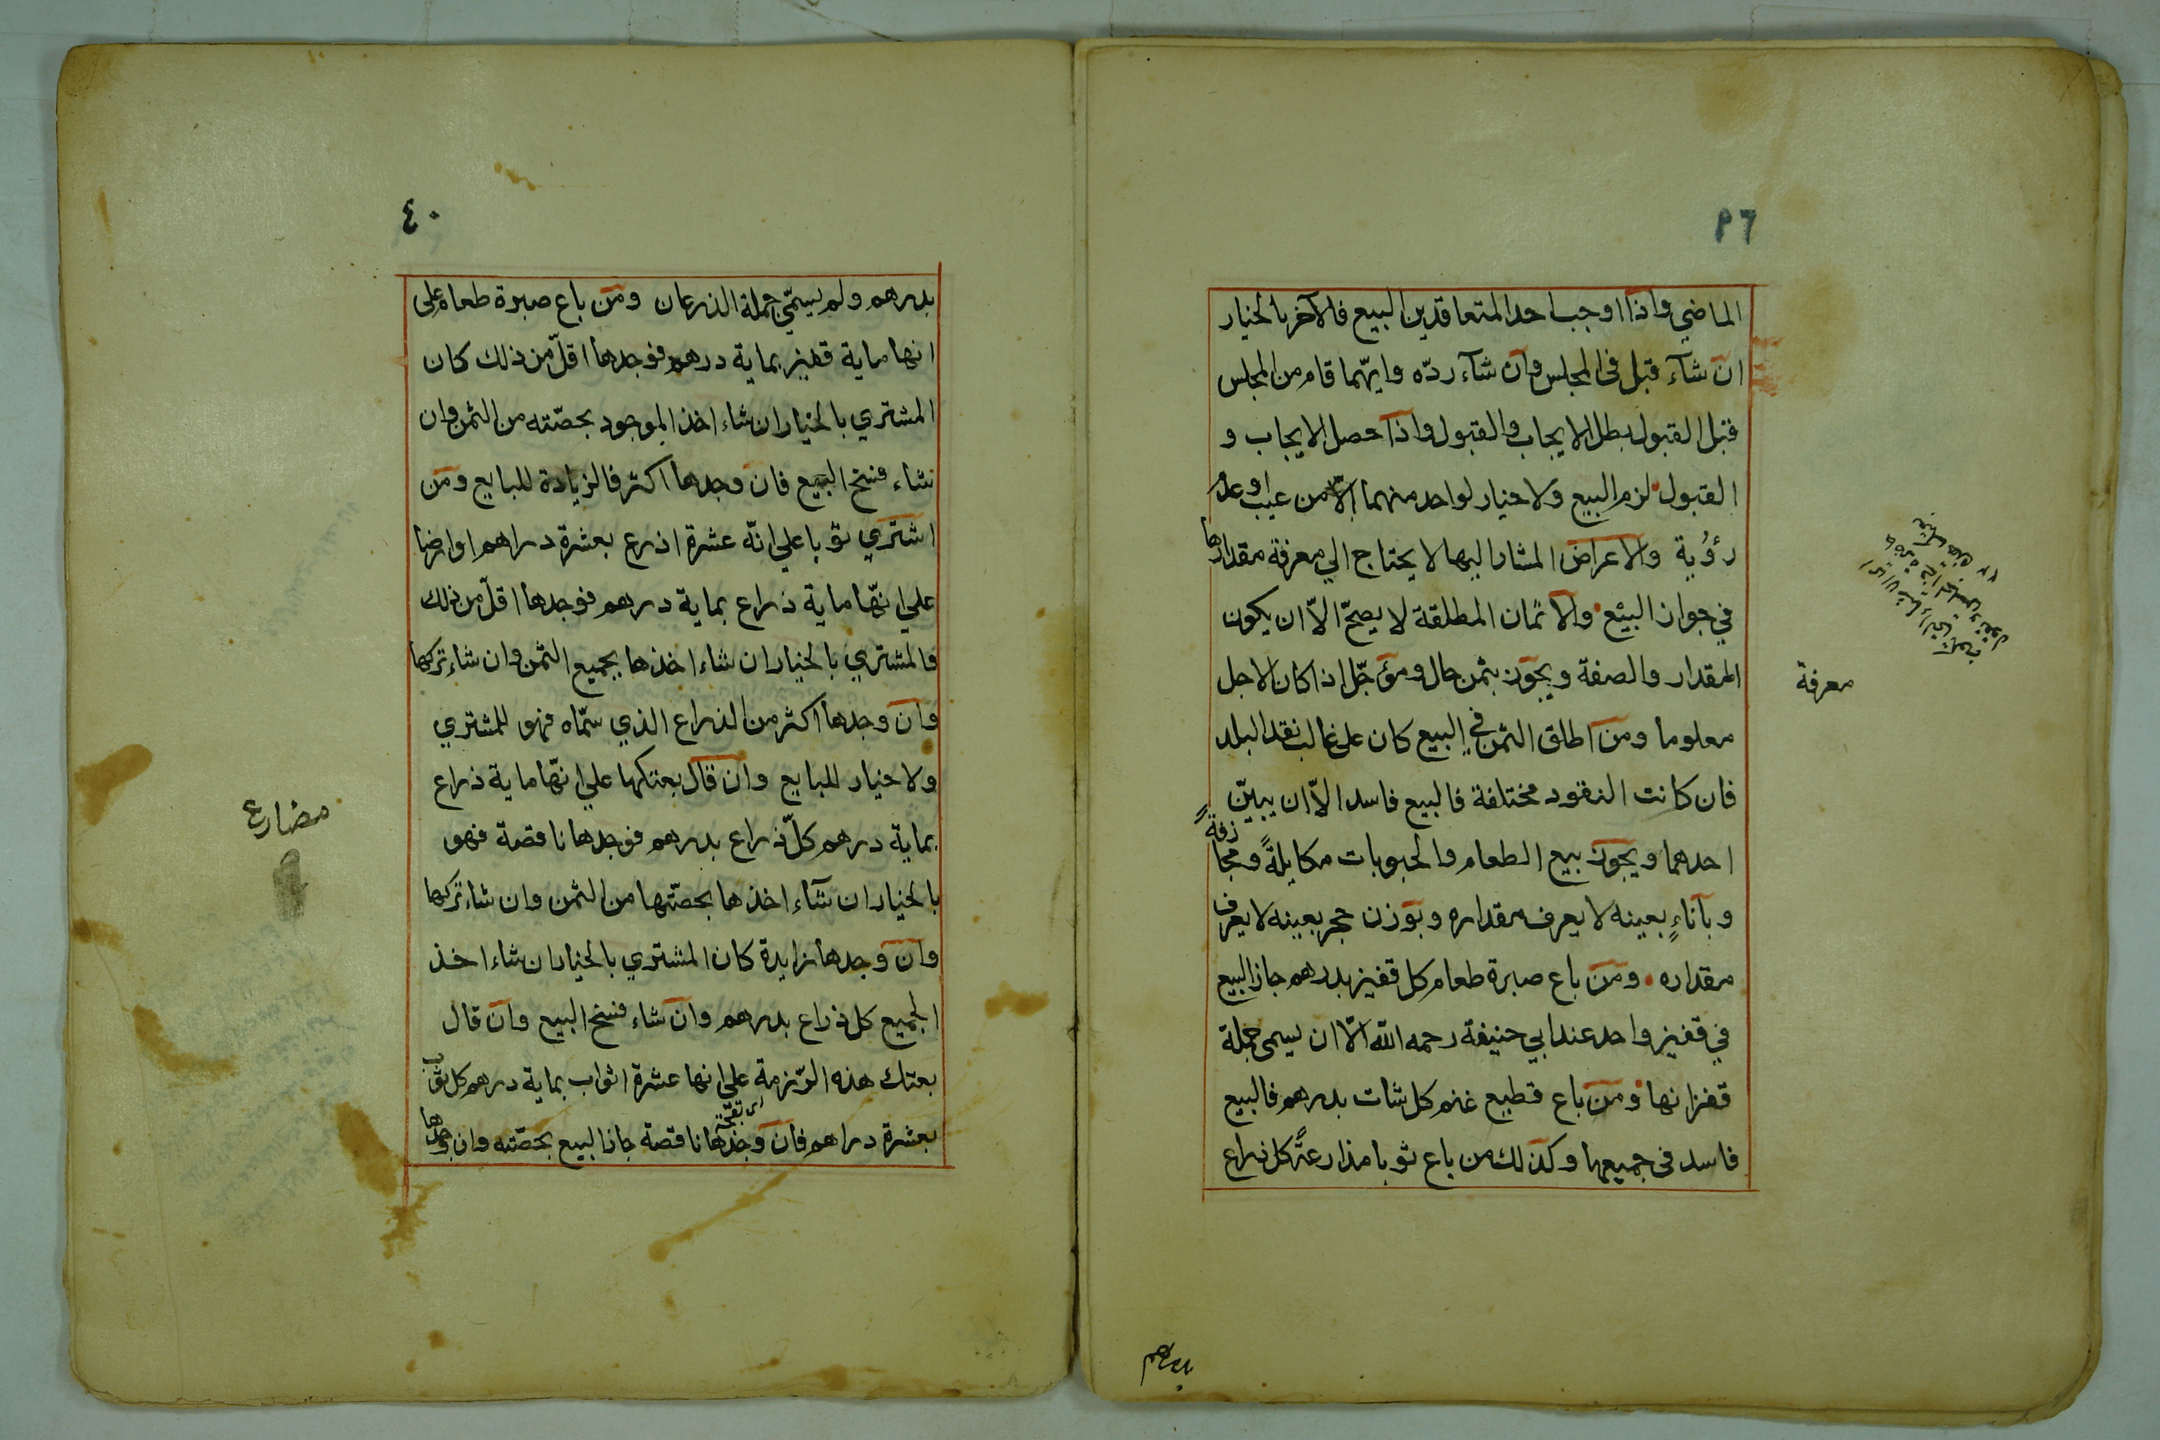 ٣٦
الماضي واذا اوجب احد المتعاقدين البيع فالآخر بالخيار
ان شآء قبل في المجلس وان شآء ردّه وايّهما قام من المجلس
قبل القبول بطل الايجاب والقبول واذا حصل الايجاب و
القبول لزم البيع ولا خيار لواحد منهما الّا من عيب او عدم
رؤية والاعراض المشار اليها لا يحتاج الي معرفة مقدارها
في جواز البيع والاثمان المطلقة لا يصحّ الّا ان يكون
المقدار والصفة ويجوز بثمن حال ومؤجّل اذا كان الاجل
معرفة
معلوما ومن اطلق الثمن في البيع كان علي غالب نقد البلد
فان كانت النقود مختلفة فالبيع فاسد الّا ان يبيّن
احدهما ويجوز بيع الطعام والحبوبات مكايلةً ومجازفةً
وبآناءٍ بعينه لا يعرف مقداره وبوزن حجر بعينه لا يعرف
مقداره ومن باع صبرة طعام كل قفيز بدرهم جاز البيع
في قفيز واحد عند ابي حنيفة رحمه الله الّا ان يسمى جملة
قفزانها ومن باع قطيع غنم كل شات بدرهم فالبيع
فاسد في جميعها وكذلك من باع ثوبا مذارعةً كل ذراع
بدرهم
٤٠
بدرهم ولم يسمّي جملة الذرعان ومن باع صبرة طعام علي
انها ماية قفيز بماية درهم فوجدها اقلّ من ذلك كان
المشتري بالخيار ان شاء اخذ الموجود بحصّته من الثمن وان
شاء فسخ البيع فان وجدها اكثر فالزيادة للبايع ومن
اشتري ثوبا علي انّه عشرة اذرع بعشرة دراهم او ارضا
علي انّها ماية ذراع بماية درهم فوجدها اقلّ من ذلك
فالمشتري بالخيار ان شاء اخذها بجميع الثمن وان شاء تركها
وان وجدها اكثر من الذراع الذي سمّاه فهو للمشتري
ولا خيار للبايع وان قال بعتكها علي انّها ماية ذراع
مضارع
بماية درهم كلّ ذراع بدرهم فوجدها ناقصة فهو
بالخيار ان شآء اخذها بحصّتها من الثمن وان شاء تركها
وان وجدها زايدة كان المشتري بالخيار ان شاء اخذ
الجميع كل ذراع بدرهم وان شاء فسخ البيع وان قال
بعتك هذه الرّزمة علي انها عشرة اثواب بماية درهم كل ثوب
بعشرة دراهم فان وجدها ناقصة جاز البيع بحصّته وان وجدها